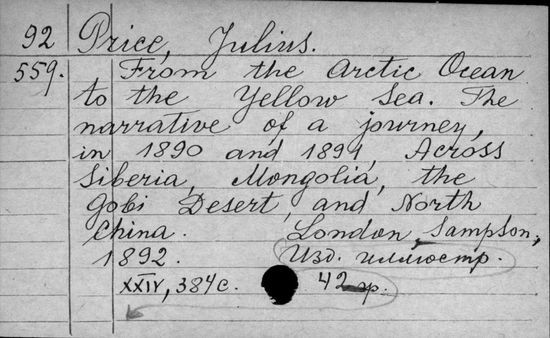 92 Price, Julius.
559. From the Arctic Ocean
to the Yellow Sea. The
narrative of a journey,
in 1890 and 1891, Across
Siberia, Mongolia, the
Gobi Desert, and North
China. London, Sampson,
1892. Изд. иллюстр.
XXIV, 384 с. 42 гр.